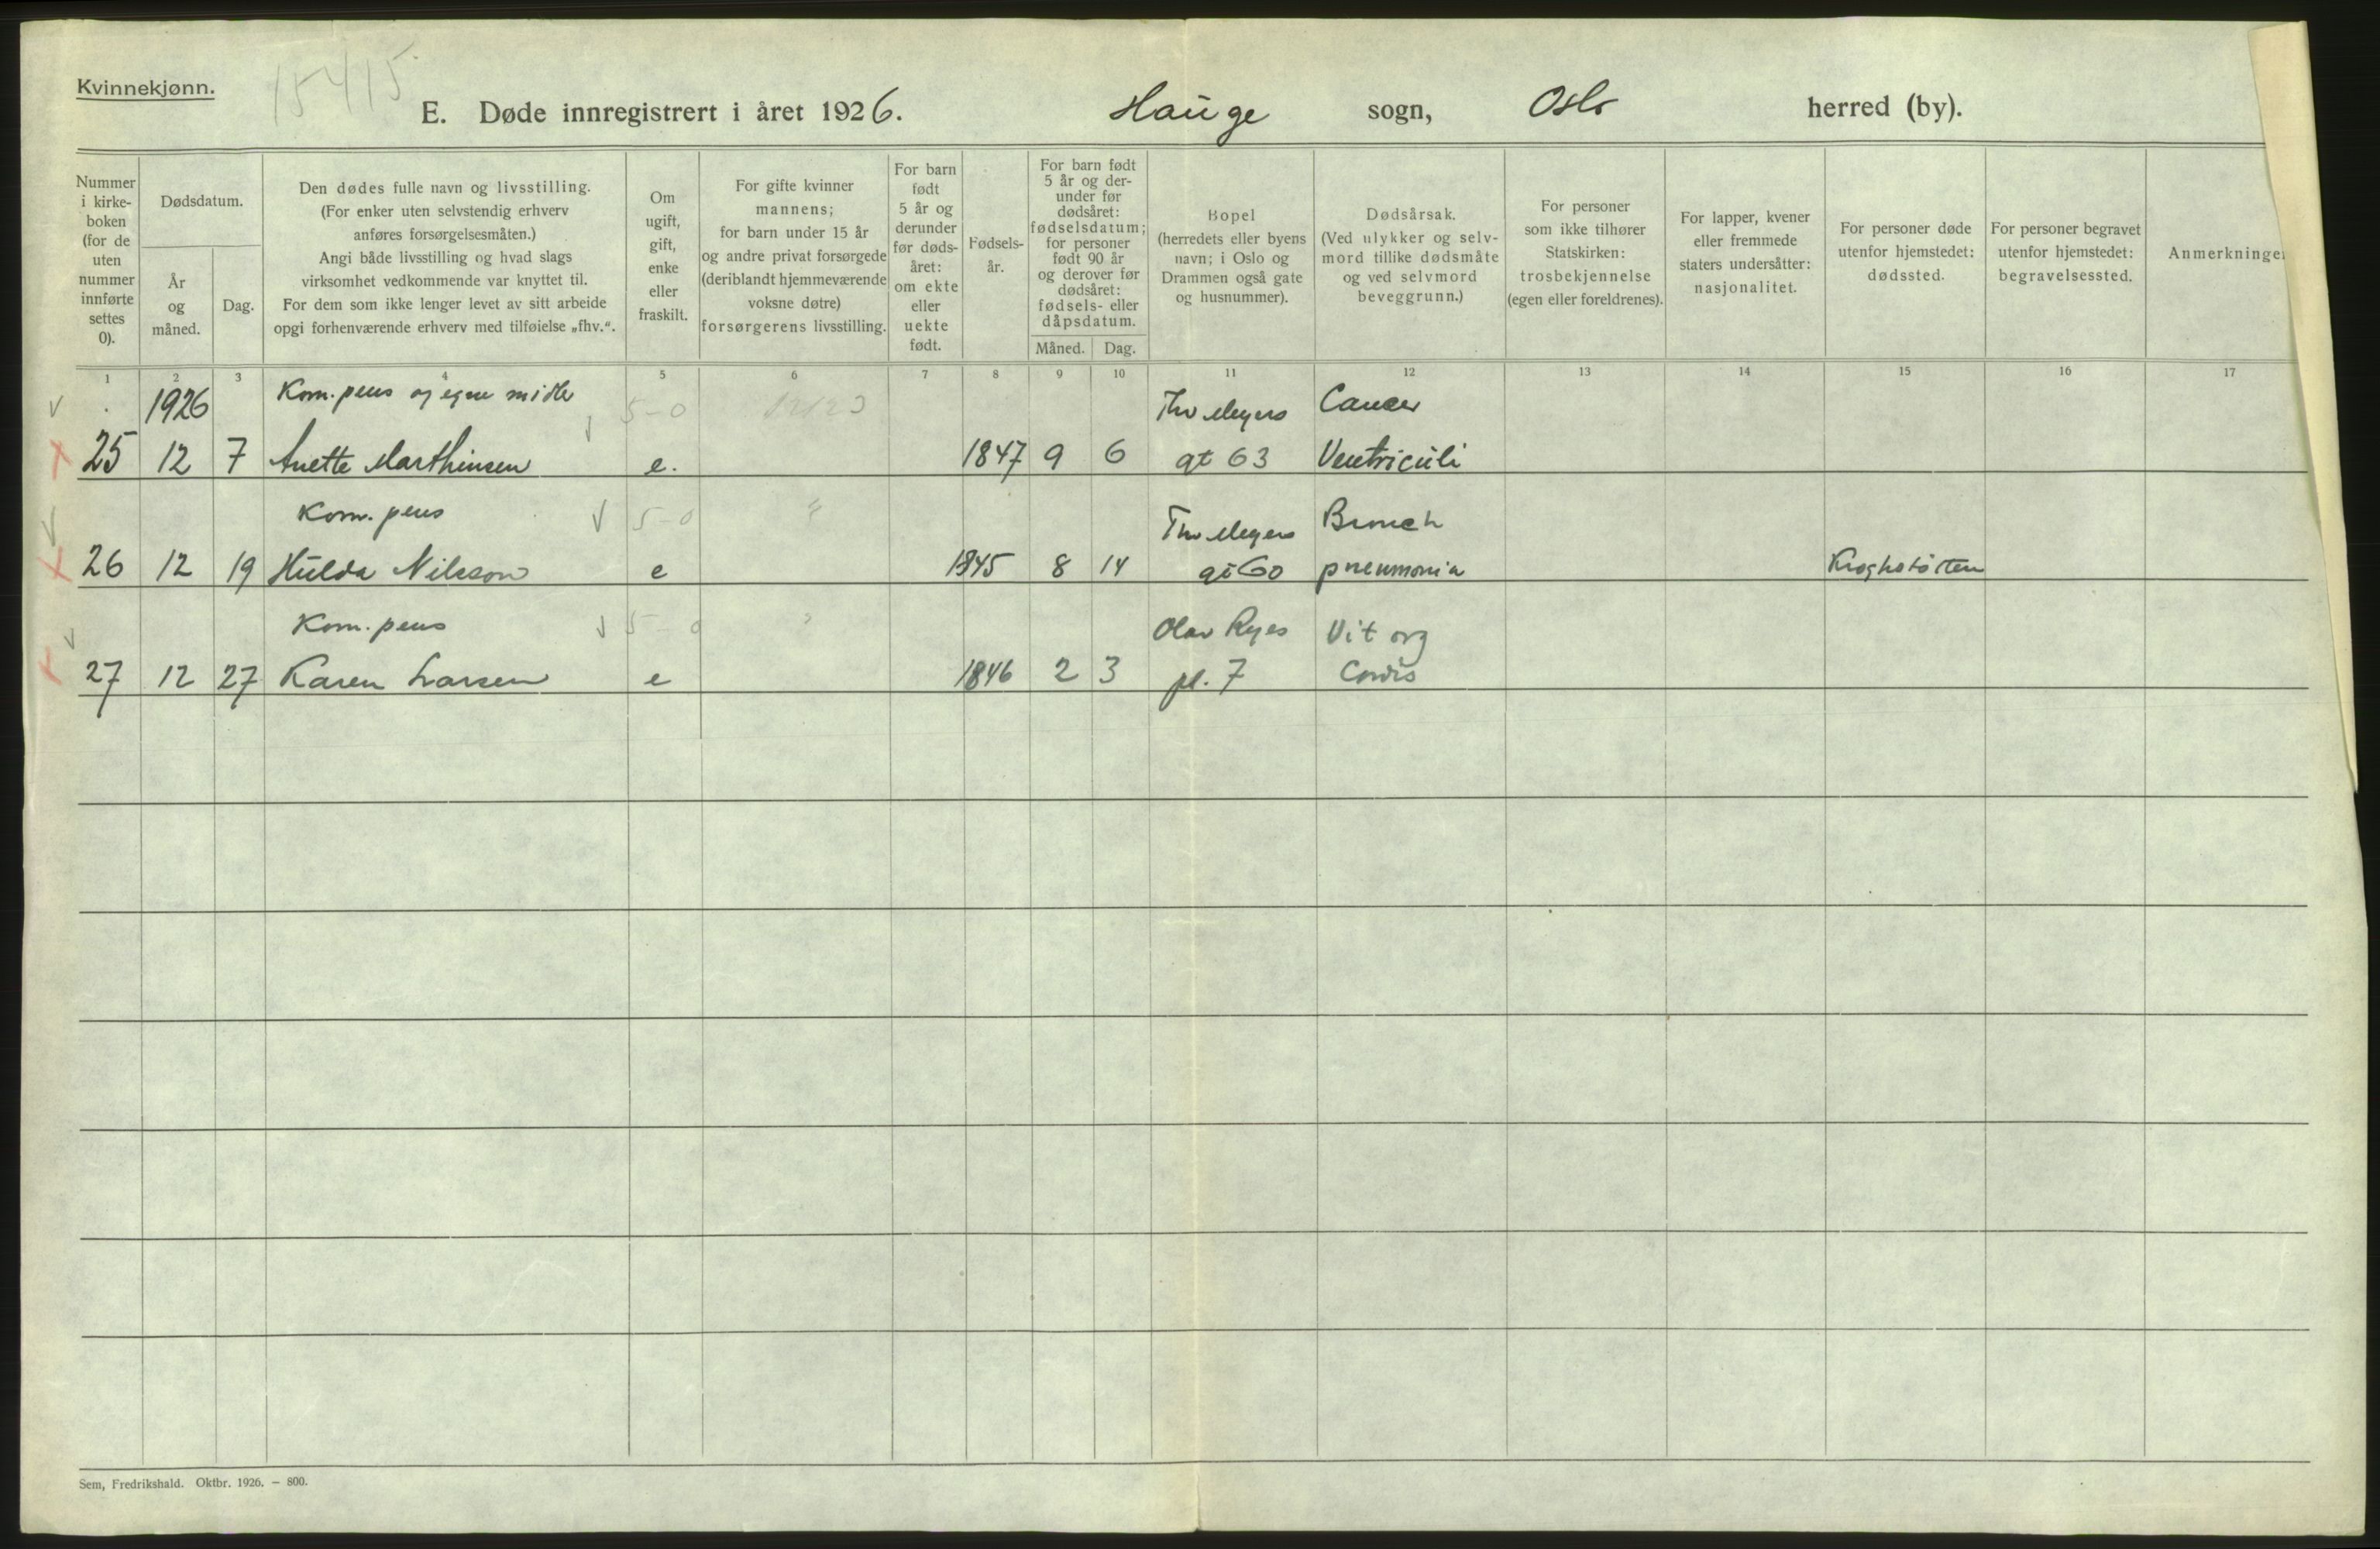 Kvinnekjønn.
15415
E. Døde innregistrert i året 1926. Hauge sogn, Oslo herred (by).
Nummer i kirke-boken (for de uten nummer innførte settes 0).
Dødsdatum.
År og måned.
Dag.
Den dødes fulle navn og livsstilling.
(For enker uten selvstendig erhverv
anføres forsørgelsesmåten.)
Angi både livsstilling og hvad slags
virksomhet vedkommende var knyttet til.
For dem som ikke lenger levet av sitt arbeide
opgi forhenværende erhverv med tilføielse „fhv.“.
Om ugift, gift, enke eller fraskilt.
For gifte kvinner
mannens;
for barn under 15 år
og andre privat forsørgede
(deriblandt hjemmeværende
voksne døtre)
forsørgerens livsstilling.
For barn født 5 år og derunder før døds-året: om ekte eller uekte født.
Fødsels-år.
For barn født
5 år og der-
under før
dødsåret:
fødselsdatum;
for personer
født 90 år
og derover før
dødsåret:
fødsels- eller
dåpsdatum.
Måned. Dag.
Bopel
(herredets eller byens
navn; i Oslo og
Drammen også gate
og husnummer).
Dødsårsak.
(Ved ulykker og selv-
mord tillike dødsmåte
og ved selvmord
beveggrunn.)
For personer
som ikke tilhører
Statskirken:
trosbekjennelse
(egen eller foreldrenes).
For lapper, kvener
eller fremmede
staters undersåtter:
nasjonalitet.
For personer døde
utenfor hjemstedet:
dødssted.
For personer begravet
utenfor hjemstedet:
begravelsessted.
Anmerkninger
1 2 3 4 5 6 7 8 9 10 11 12 13 14 15 16 17
1926 Kom. pens og egne midler 5-0 Thv Meyers Cancer
25 12 7 Anette Marthinsen e. 1847 9 6 gt 63 Ventriculi
Kom. pens 5-0 Thv Meyers Bronch
26 12 19 Hulda Nilsson e 1845 8 14 gt 60 pneumonia Kroghstøtten
Kom. pens 5 0 Olav Ryes Vit org
27 12 27 Karen Larsen e 1846 2 3 pl. 7 Cordis
Sem, Fredrikshald. Oktbr. 1926. — 800.